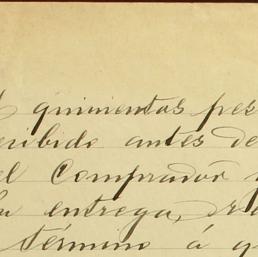 quinientos pes
cribido antes de
el Comprador
la entrega,
término á q